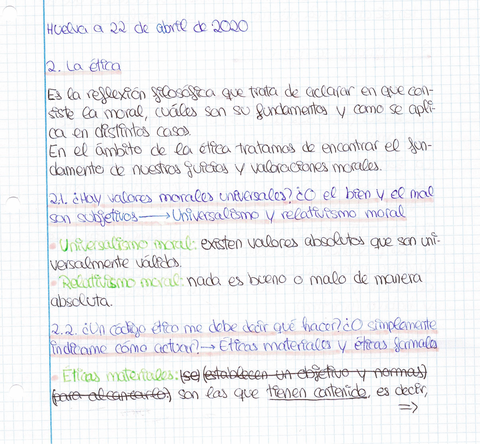 Huelva a 22 de abril de 2020
2. La ética
Es la reflexión filosófica que trata de aclarar en que con-
siste la moral, cuáles son su fundamentos y como se apli-
ca en distintos casos
En el ámbito de la ética tratamos de encontrar el fun-
damento de nuestros juicios y valoraciones morales.
2.1. ¿Hay valores morales universales? ¿O el bien y el mal
son subjetivos → Universalismo y relativismo moral
• Universalismo moral: existen valores absolutos que son uni-
versalmente válidos.
• Relativismo moral: nada es bueno o malo de manera
absoluta.
2.2. ¿Un código ético me debe decir qué hacer? ¿O simplemente
indicame cómo actuar? → Éticas materiales y éticas formales
• Éticas materiales: (se) (establecen un objetivo y normas)
(para alcanzarlo) son las que tienen contenido, es decir,
⇒